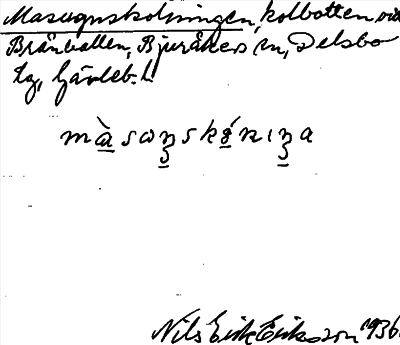 Masugnskolningen, kolbotten vid
Brånvallen, Bjuråkers sn, Delsbo
tg, Gävleb. l.
Nils Erik Eriksson 1936.